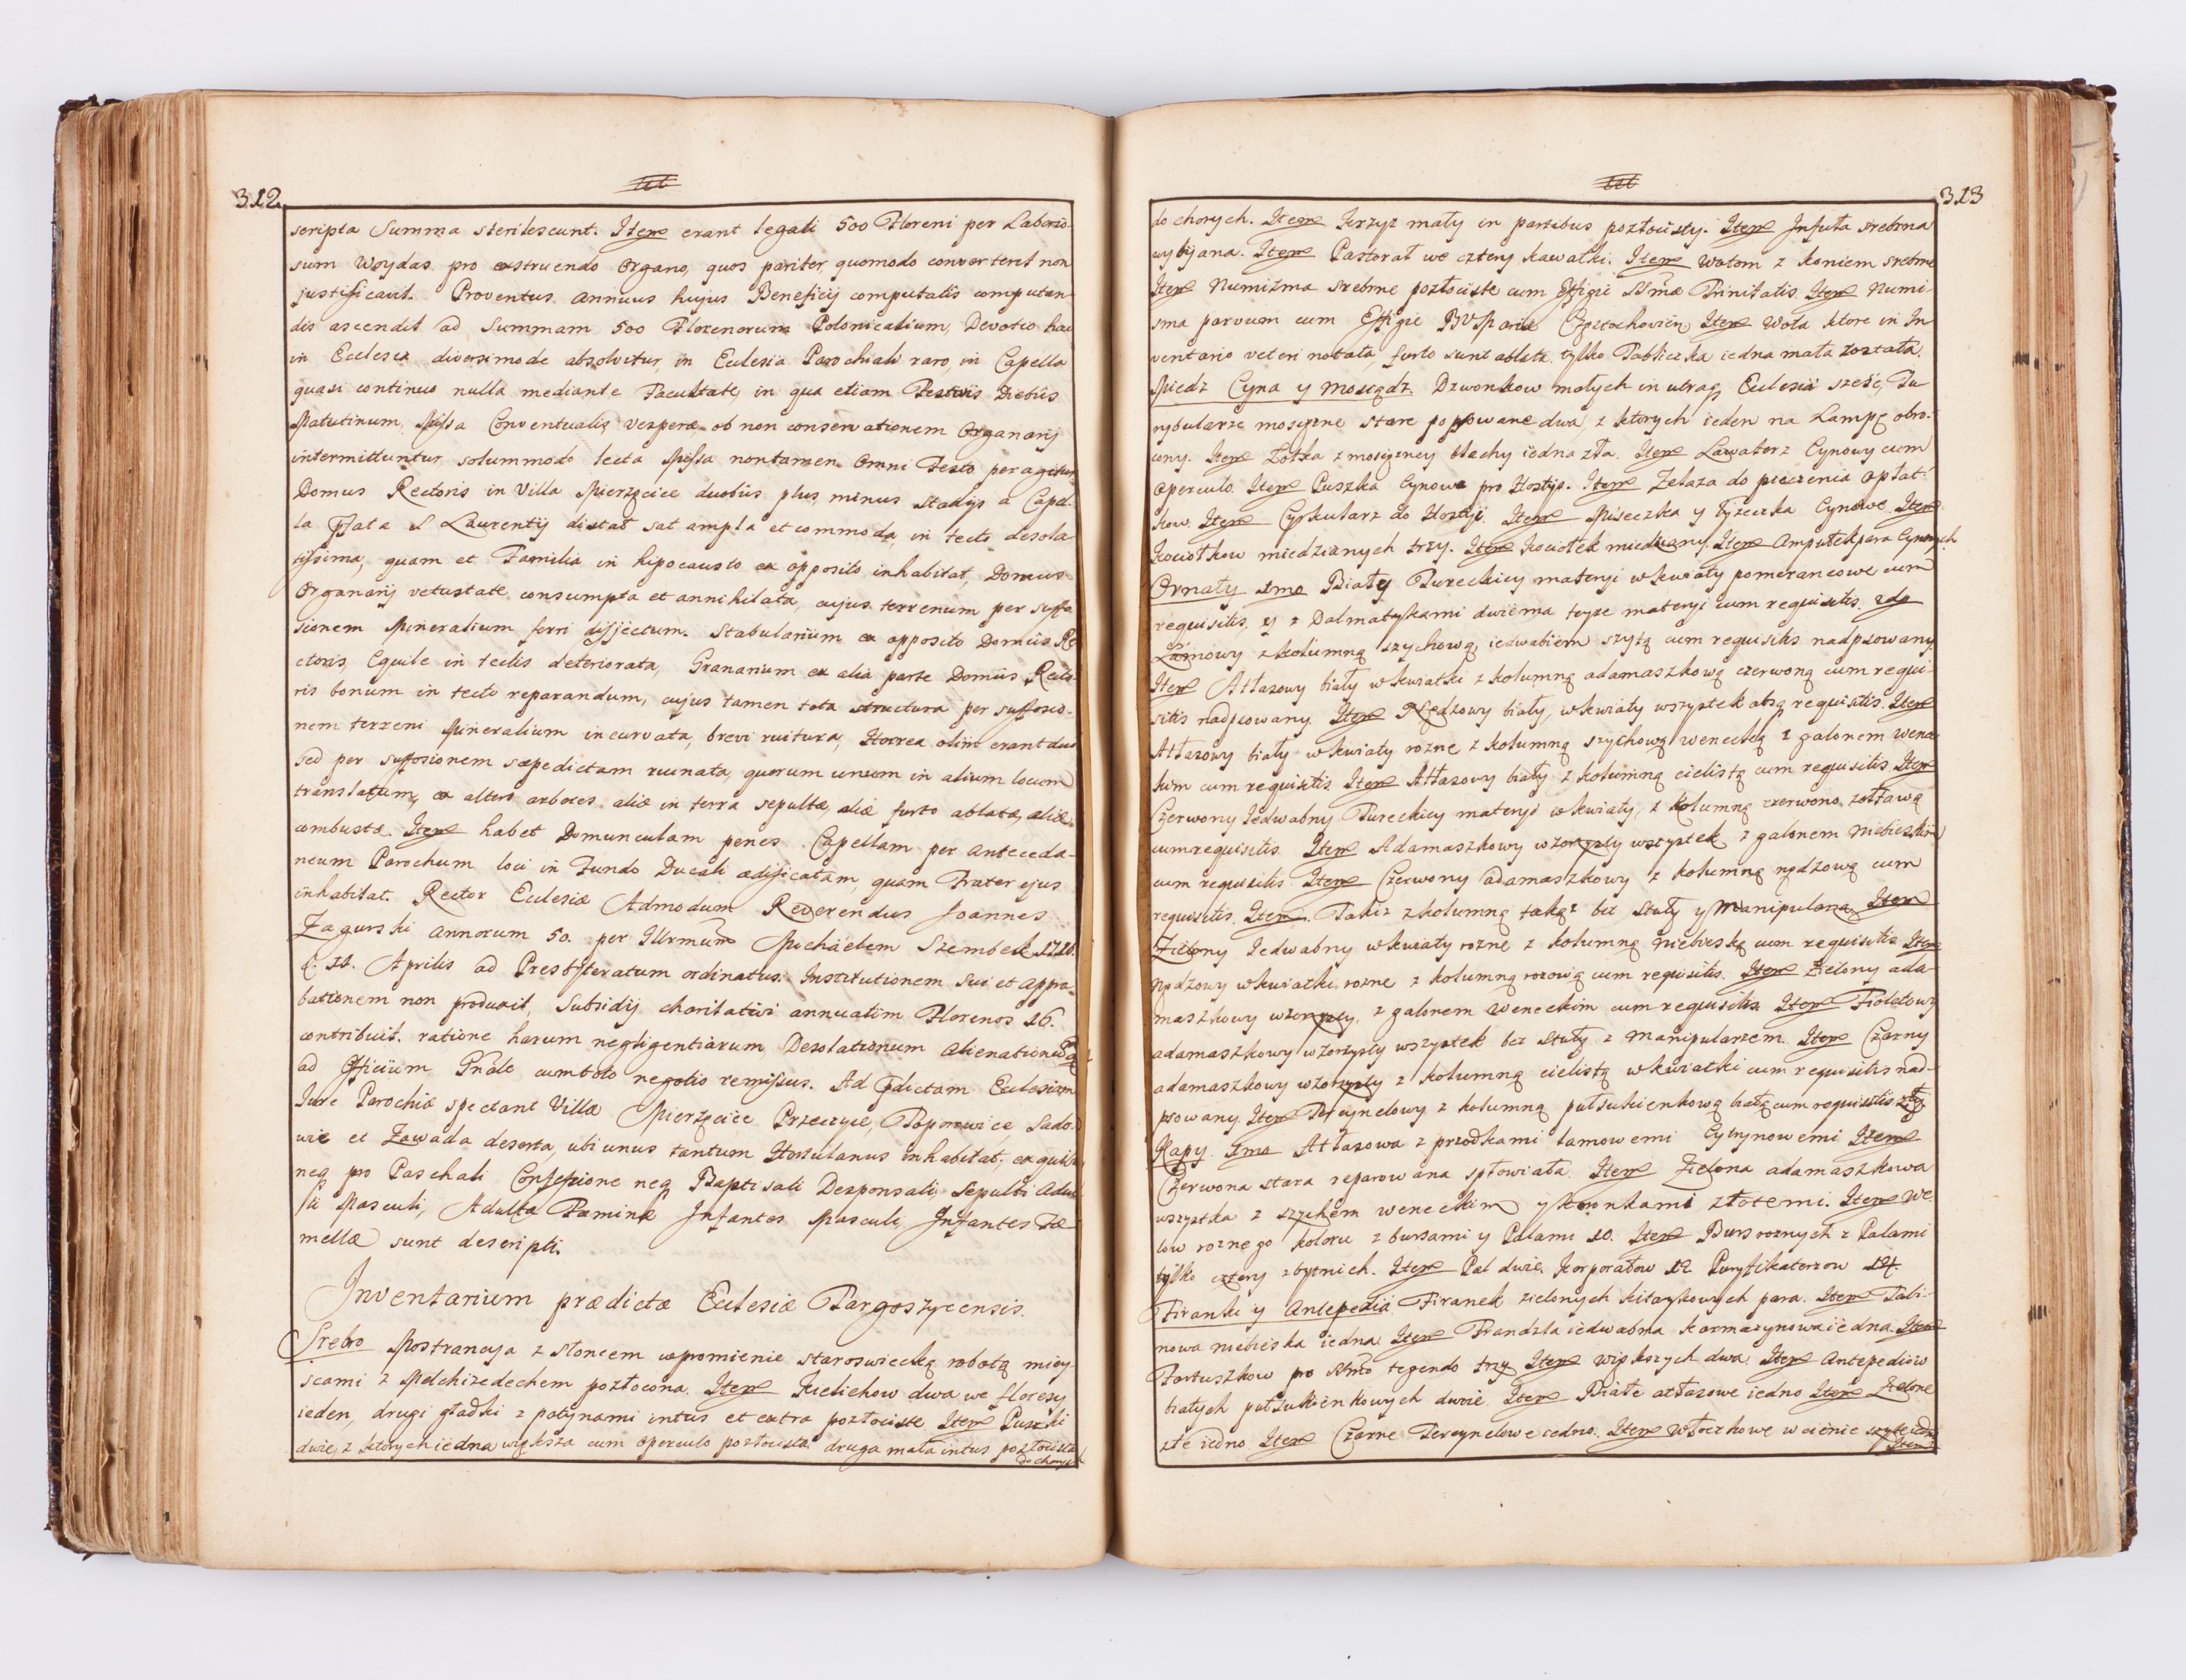 312
scripta Summa sterilescunt. Item erant legati 500 Floreni per Laborio-
sum Woydas pro exstruendo Organo, quos pariter, quomodo converteret non
justificavit. Proventus annuus hujus Beneficij computatis computan-
dis ascendit ad Summam 500 Florenorum Polonicalium, Devotio hac
in Ecclesia diversimode absolvitur, in Ecclesia Parochiali raro, in Capella
quasi continuo nulla mediante Facultate, in qua etiam Festivis Diebus
Matutinum, Missa Conventualis Vesperæ, ob non conservationem Organarij
intermittuntur, solummodo lecta Missa non tamen Omni Festo peragitur.
Domus Rectoris in Villa Mierzęcice duobus plus minus Stadijs a Capel-
la S Laurentij distat sat ampla et commoda, in tecto desola-
tissima, quam et Familia in hipocausto ex opposito inhabitat, Domus
Organarij vetustate consumpta et annihilata, cujus terrenum per suffo-
sionem Mineralium ferri disjectum. Stabularium ex opposito Domus Re
ctoris, Equile in tectis deteriorata, Granarium ex alia parte Domus Recto-
ris bonum in tecto reparandum, cujus tamen tota structura per suffosio-
nem terreni Mineralium incurvata, brevi ruitura, Horrea olim erant duo
sed per suffosionem sæpedictam ruinata, quorum unum in alium locum
translatum, ex altero arbores aliæ in terra sepultæ, aliæ furto ablatæ, aliæ
combustæ. Item habet Domunculam penes Capellam per Anteceda-
neum Parochum loci in Fundo Ducali ædificatam, quam Frater ejus
inhabitat. Rector Ecclesiæ Admodum Reverendus Joannes
Zagurski annorum 50. per Illrmum Michäelem Szembek
Aprilis ad Presbyteratum ordinatus. Institutionem sui et appro-
bationem non produxit, Subsidij charitativi annuatim Florenos 16.
contribuit. ratione harum negligentiarum Desolationum alienationum
ad Officium cum toto negotio remissus. Ad Ecclesiam
Jure Parochiæ spectant Villæ Mierzęcice Przeczyce, Toporowice, Sado-
wie et Zawada deserta, ubi unus tantum Hortulanus inhabitat; ex quibus
neq pro Paschali Confessione neq Baptisati Desponsati, Sepulti Adul
ti Masculi, Adultæ Fæminæ Infantes Masculi, Infantes Fæ
mellæ sunt descripti.
Inventarium prædictæ Ecclesiæ Targoszycensis.
Srebro Mostrancya z słoncem w promienie staroswiecką robotą miey
scami z Melchizedechem pozłocona. Item Kielichow dwa we floresy
ieden, drugi gładki z patynami intus et extra pozłociste Item Puszki
dwie, z ktorych iedna większa cum operculo pozłocista druga mała intus pozłocista
do chorych
313
do chorych. Item Krzyz mały in partibus pozłocisty. Item Infuła srebrna
wybijana. Item Pastorał we cztery kawałki. Item Wotom z koniem srebrne
Item Numizma srebrne pozłociste cum Effigie SSmæ Trinitatis. Item Numi-
sma parvum cum Effigie Item Wota ktore in In
ventario veteri notata, furto sunt ablata tylko Tabliczka iedna mała została.
Miedz Cyna y Mosiądz. Dzwonkow małych in utraq Ecclesia sześć, Tu
rybularze mosiężne stare popsowane dwa z ktorych ieden na Lampę obro-
cony. Item Łotka z mosiężney blachy iedna zła. Item Lawaterz Cynowy cum
Operculo. Item Puszka Cynowa pro Hostijs. Item Zelaza do pieczenia Opłat-
kow. Item Cyrkularz do Hostyi. Item Miseczka y łyżeczka Cynowe Item
Kociołkow miedzianych trzy. Item Kociołek miedziany. Item Ampułek para Cynowych
Ornaty 1mo Biały Tureckiey materyi w kwiaty pomerancowe cum
requisitis y z Dalmatykami dwiema teyze materyi cum requisitis. 2do
Lamowy z kolumną szychową, iedwabiem szytą cum requisitis nadpsowany.
Item Atłasowy biały w kwiatki z kolumną adamaszkową czerwoną cum requi-
sitis nadpsowany. Item biały, w kwiaty wszystek absq requisitis. Item
Atłasowy biały w kwiaty rozne z kolumną szychową wenecką z galonem wenec
kim cum requisitis Item Atłasowy biały z kolumną cielistą cum requisitis Item
Czerwony Jedwabny Tureckiey materyi w kwiaty, z kolumną czerwono zołtawą
cum requisitis Item Adamaszkowy wzorzysty wszystek z galonem niebieskim
cum requisitis Item Czerwony adamaszkowy z kolumną rądzową cum
requisitis. Item. Takiz z kolumną takąz bez Stuły y Manipularza Item
Zielony Jedwabny w kwiaty rozne z kolumną niebieską cum requisitis Item
rądzowy w kwiatki rozne z kolumną rozową cum requisitis. Item Zielony ada
maszkowy wzorzysty, z galonem weneckim cum requisitis. Item Fioletowy
adamaszkowy wzorzysty wszystek bez Stuły z Manipularzem. Item Czarny
adamaszkowy wzorzysty z kolumną cielistą w kwiatki cum requisitis nad-
psowany. Item Tercynelowy z kolumną pułsukienkową białą cum requisitis zły
Kapy. 1mo Atłasowa z przodkami lamowemi Cytrynowemi Item
Czerwona stara reparowana spłowiała. Item Zielona adamaszkowa
wszystka z szychem weneckim y koronkami złotemi. Item We
low roznego koloru z bursami y Palami 10. Item Burs roznych z Palami
tylko cztery zbytnich. Item Pal dwie Korporałow 12 Puryfikaterzow 14
Firanki y Antepedia Firanek zielonych kitaykowych para. Item Tabi-
nowa niebieska iedna. Item Frandzla iedwabna karmazynowa iedna. Item
Fartuszkow pro tegendo trzy Item większych dwa. Item Antepediow
białych pułsukienkowych dwoie. Item Białe atłasowe iedno Item Zielone
złe iedno. Item Czarne Tercynelowe iedno. Item Włoczkowe w cienie szyte iedno
Item